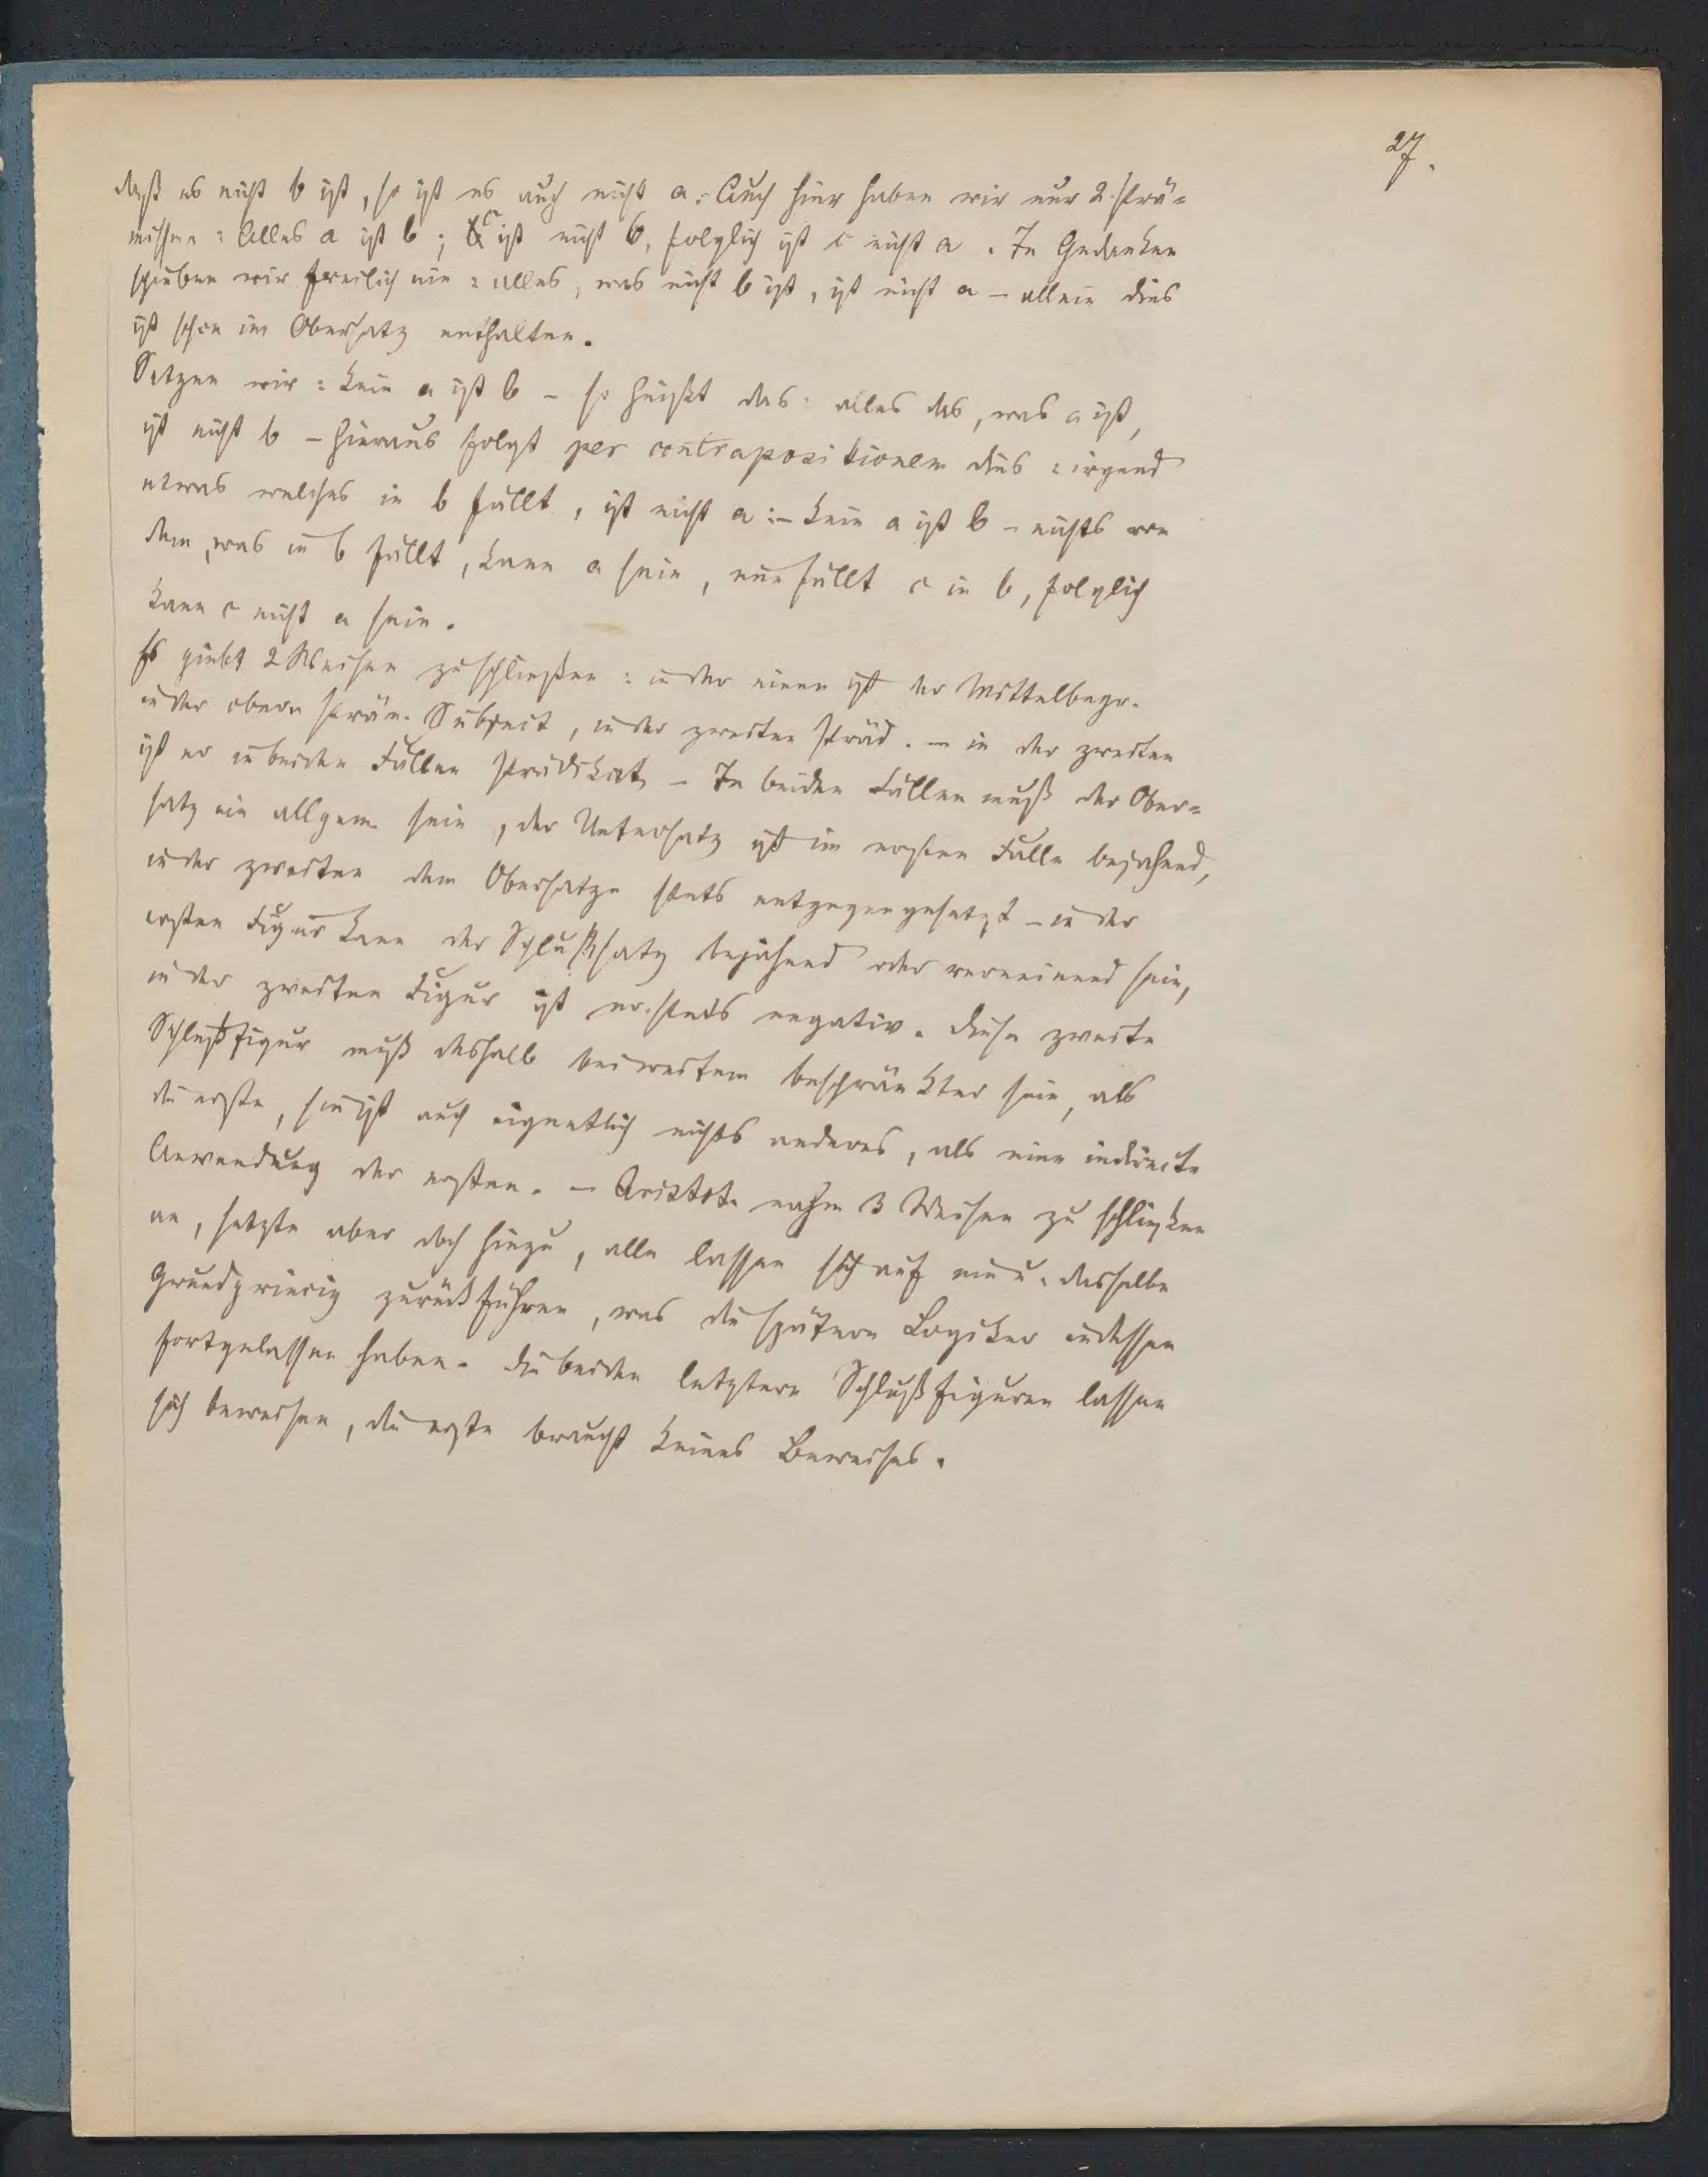 27.
daß es nicht b ist, so ist es auch nicht a. Auch hier haben wir nur 2. Prä=
missen: Alles a ist b; c ist nicht b, folglich ist c nicht a. In Gedanken
schieben wir freilich ein: alles, was nicht b ist, ist nicht a – allein dies
ist schon im Obersatz enthalten.
Setzen wir: kein a ist b – so heißt das: alles das, was a ist,
ist nicht b – hieraus folgt per contrapositionem dies: irgend
etwas welches in b fällt, ist nicht a: – kein a ist b – nichts von
dem, was in b fällt, kann a sein, nun fällt c in b, folglich
kann c nicht a sein.
Es giebt 2 Weisen zu schließen: in der einen ist der Mittelbegr.
in der obern Präm. Subject, in der zweiten Präd. – in der zweiten
ist er in beiden Fällen Prädikat – In beiden Fällen muß der Ober=
satz ein allgem. sein, der Untersatz ist im ersten Falle bejahend,
in der zweiten dem Obersatze stets entgegengesetzt – in der
ersten Figur kann der Schlußsatz bejahend oder verneinend sein,
in der zweiten Figur ist er stets negativ. Diese zweite
Schlußfigur muß deshalb bei weitem beschränkter sein, als
die erste, sie ist auch eigentlich nichts anderes, als eine indirecte
Anwendung der ersten. – Aristot. nahm 3 Weisen zu schließen
an, setzte aber doch hinzu, alle lassen sich auf ein u. dasselbe
Grundprincip zurückführen, was die spätern Logiker indessen
fortgelassen haben. Die beiden letztern Schlußfiguren lassen
sich beweisen, die erste braucht keines Beweises.